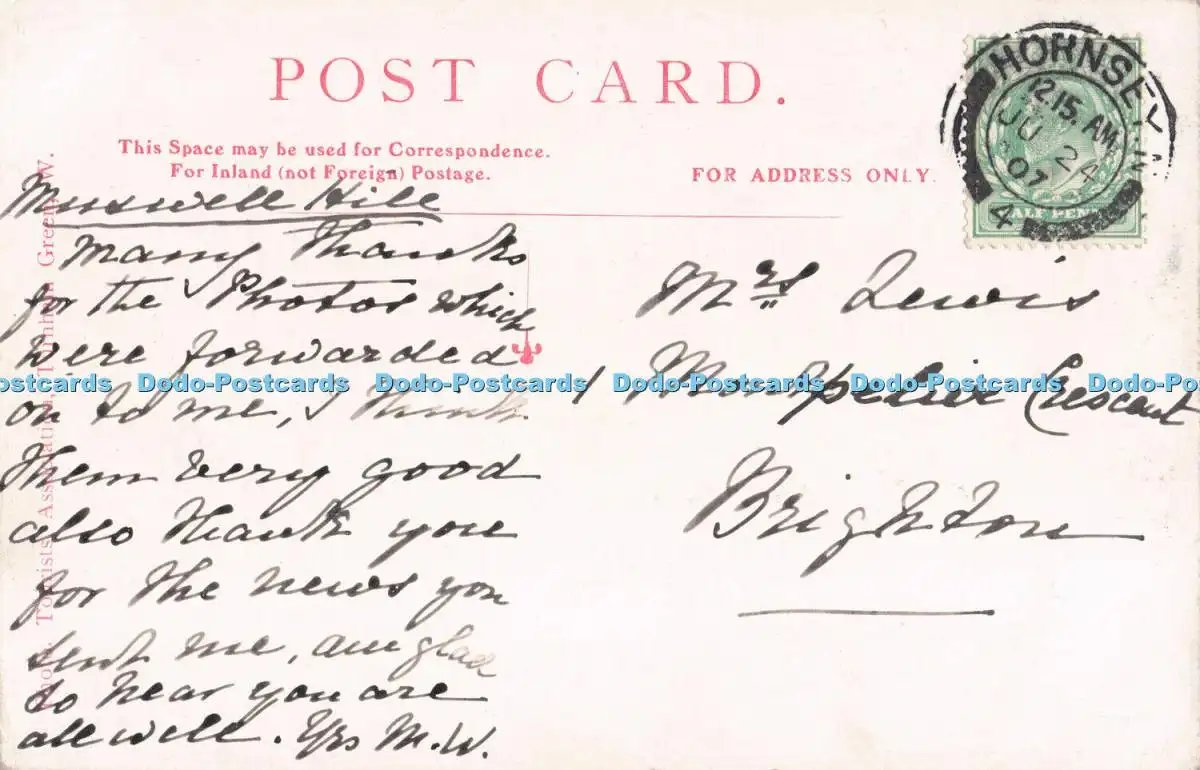 POST CARD.
This Space may be used for Correspondence.
For Inland (not Foreign) Postage.
FOR ADDRESS ONLY.
HORNSEY. N.
12.15. AM
JU 24
07
4
HALF PENNY
Muswell Hill
Many Thanks
for the Photos which
were forwarded
on to me, I think
them very good
also thank you
for the news you
sent me, am glad
to hear you are
all well. Yrs M.W.
Mrs Lewis
1 Montpelier Crescent
Brighton
Photo. Tourists Association, Turnham Green, W.
Dodo-Postcards Dodo-Postcards Dodo-Postcards Dodo-Postcards Dodo-Postcards Dodo-Postcards